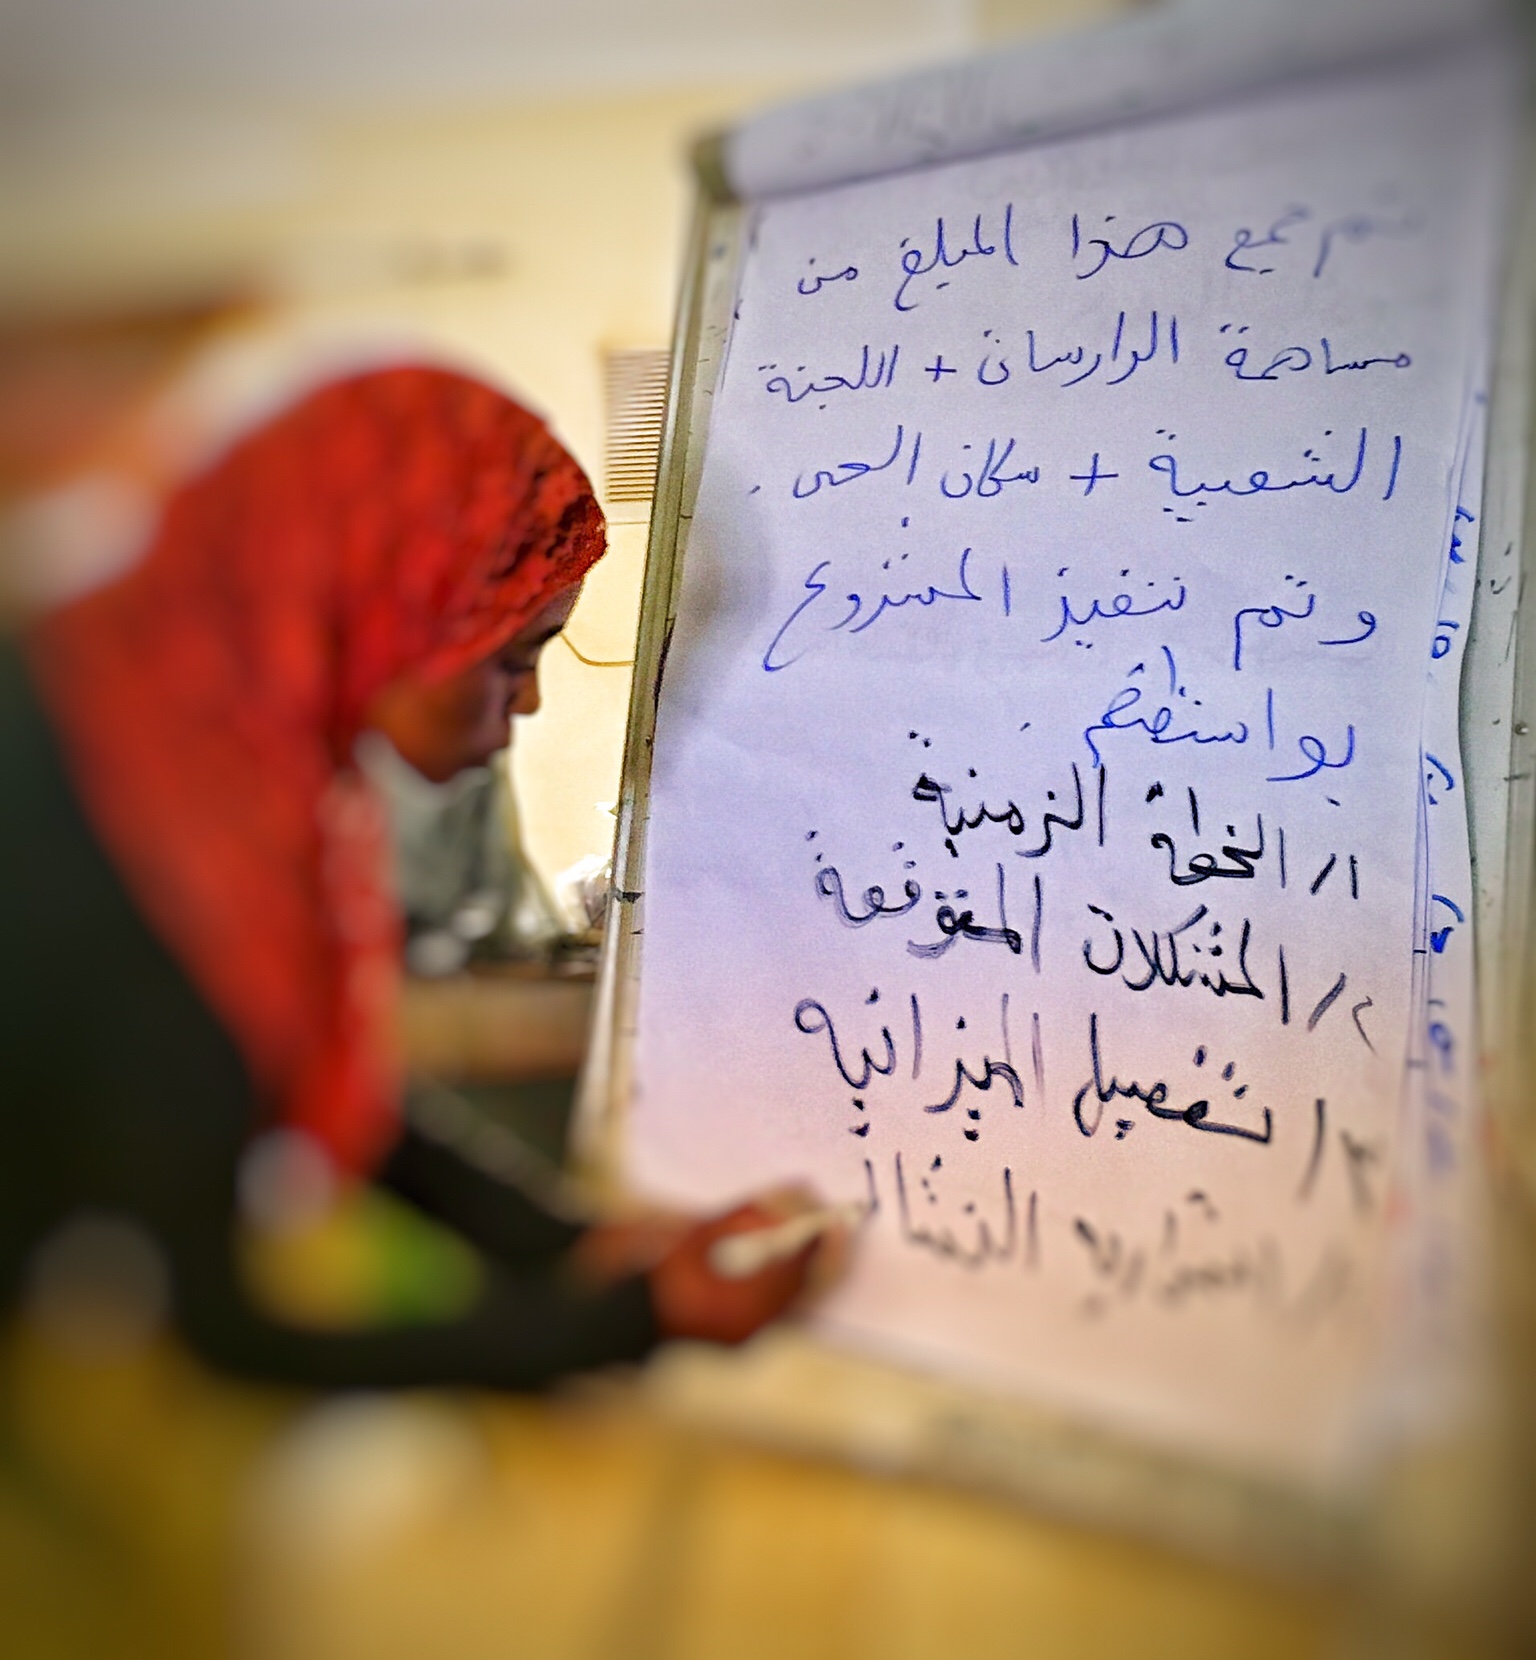 تم جمع هذا المبلغ من
مساهمة الدارسات + اللجنة
الشعبية + سكان الحى .
وتم تنفيذ المشروع
بواسطتهم .
١/ الخطة الزمنية
٢/ المشكلات المتوقعة
٣/ تفصيل الميزانيه
النشا